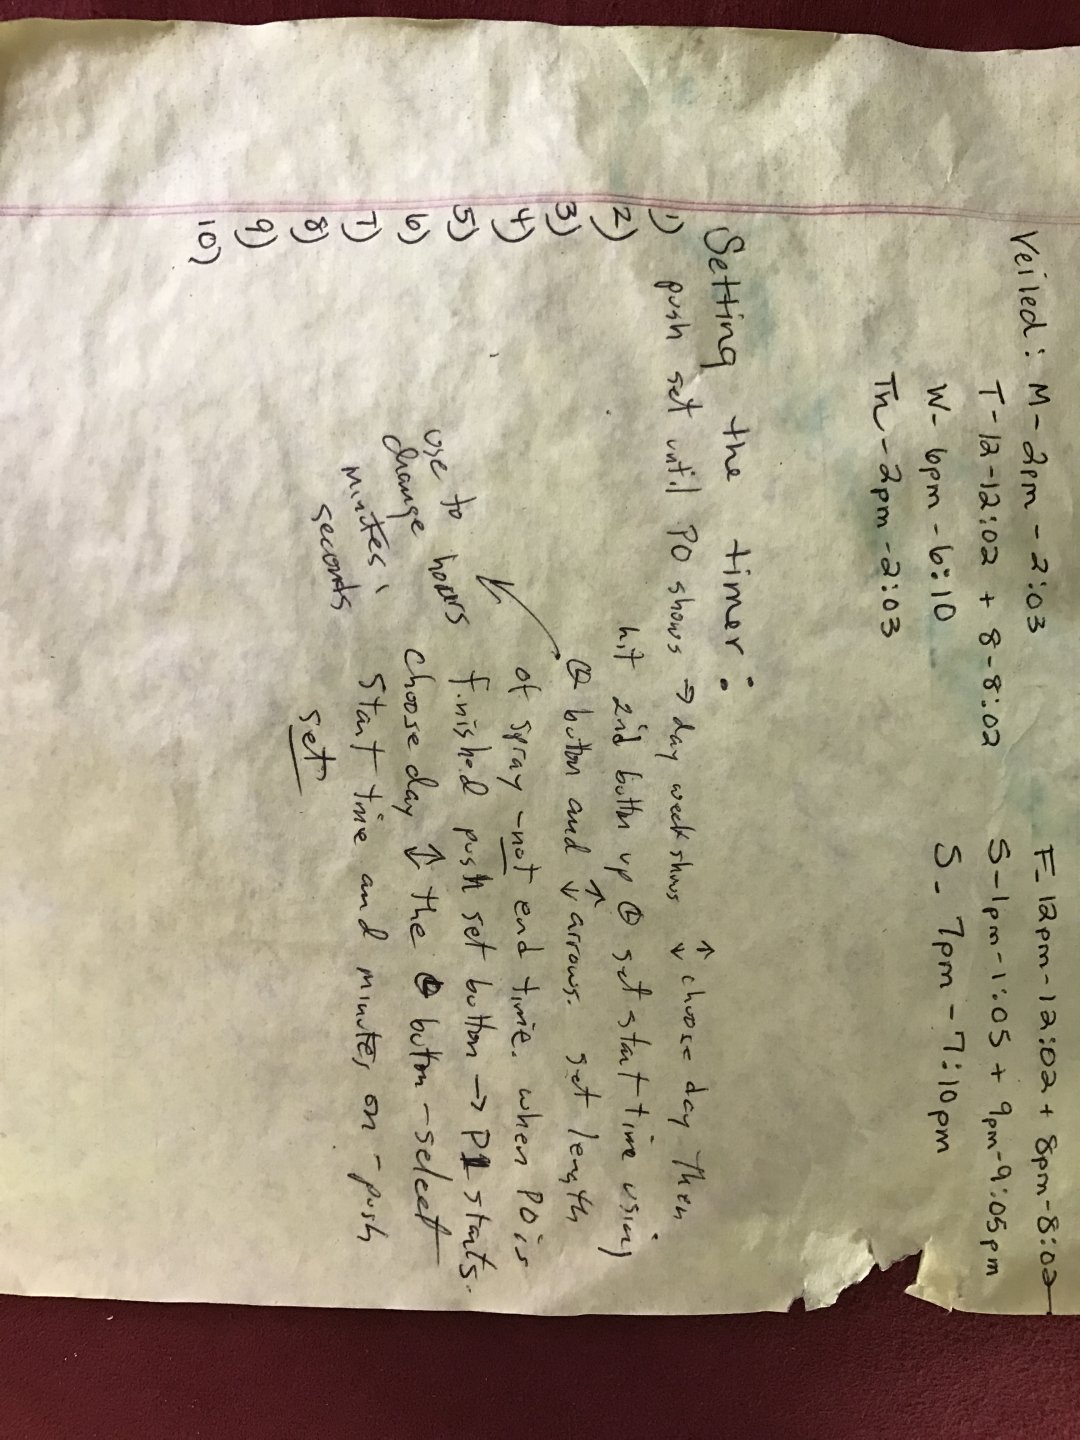 Veiled: M - 2pm - 2:03 F - 12pm - 12:02 + 8pm - 8:02
T - 12 - 12:02 + 8 - 8:02 S - 1pm - 1:05 + 9pm - 9:05pm
W - 6pm - 6:10 S - 7pm - 7:10pm
Th - 2pm - 2:03
Setting the timer:
1) push set until P0 shows → day week shows ↑↓ choose day then
2) hit 2nd button up set start time using
3) button and ↑↓ arrows. set length
4) of spray - not end time. when P0 is
5) finished push set button → P1 starts.
6) choose day ↑ the button - select
7) start time and minutes on - push
8) set
9)
10)
use to
change hours
minutes
seconds